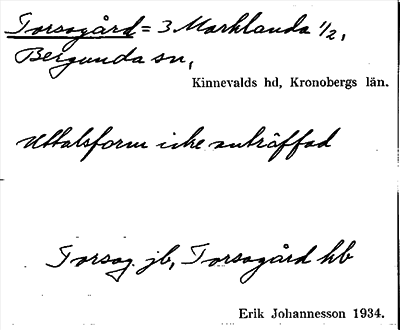 Torsogård = 3 Marklanda 1/2,
Bergunda sn,
Kinnevalds hd, Kronobergs län.
Uttalsform icke anträffad
Torsog. jb, Torsogård hb
Erik Johannesson 1934.